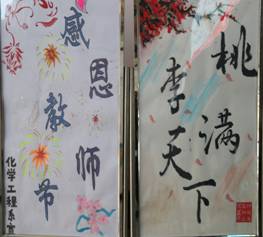 感恩教师节
化学工程系宣
桃李满天下